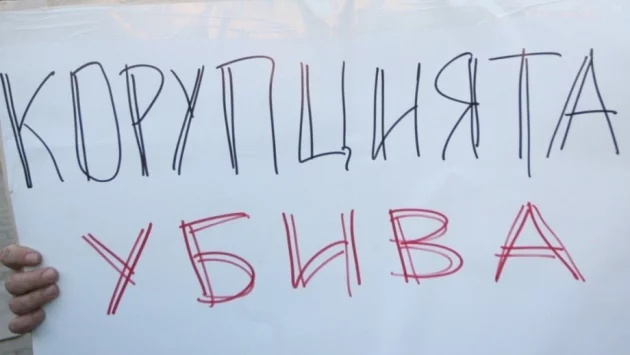 КОРУПЦИЯТА
УБИВА